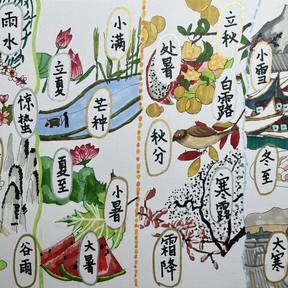 雨水
惊蛰
谷雨
立夏
小满
芒种
夏至
小暑
大暑
立秋
处暑
白露
秋分
寒露
霜降
小雪
冬至
大寒